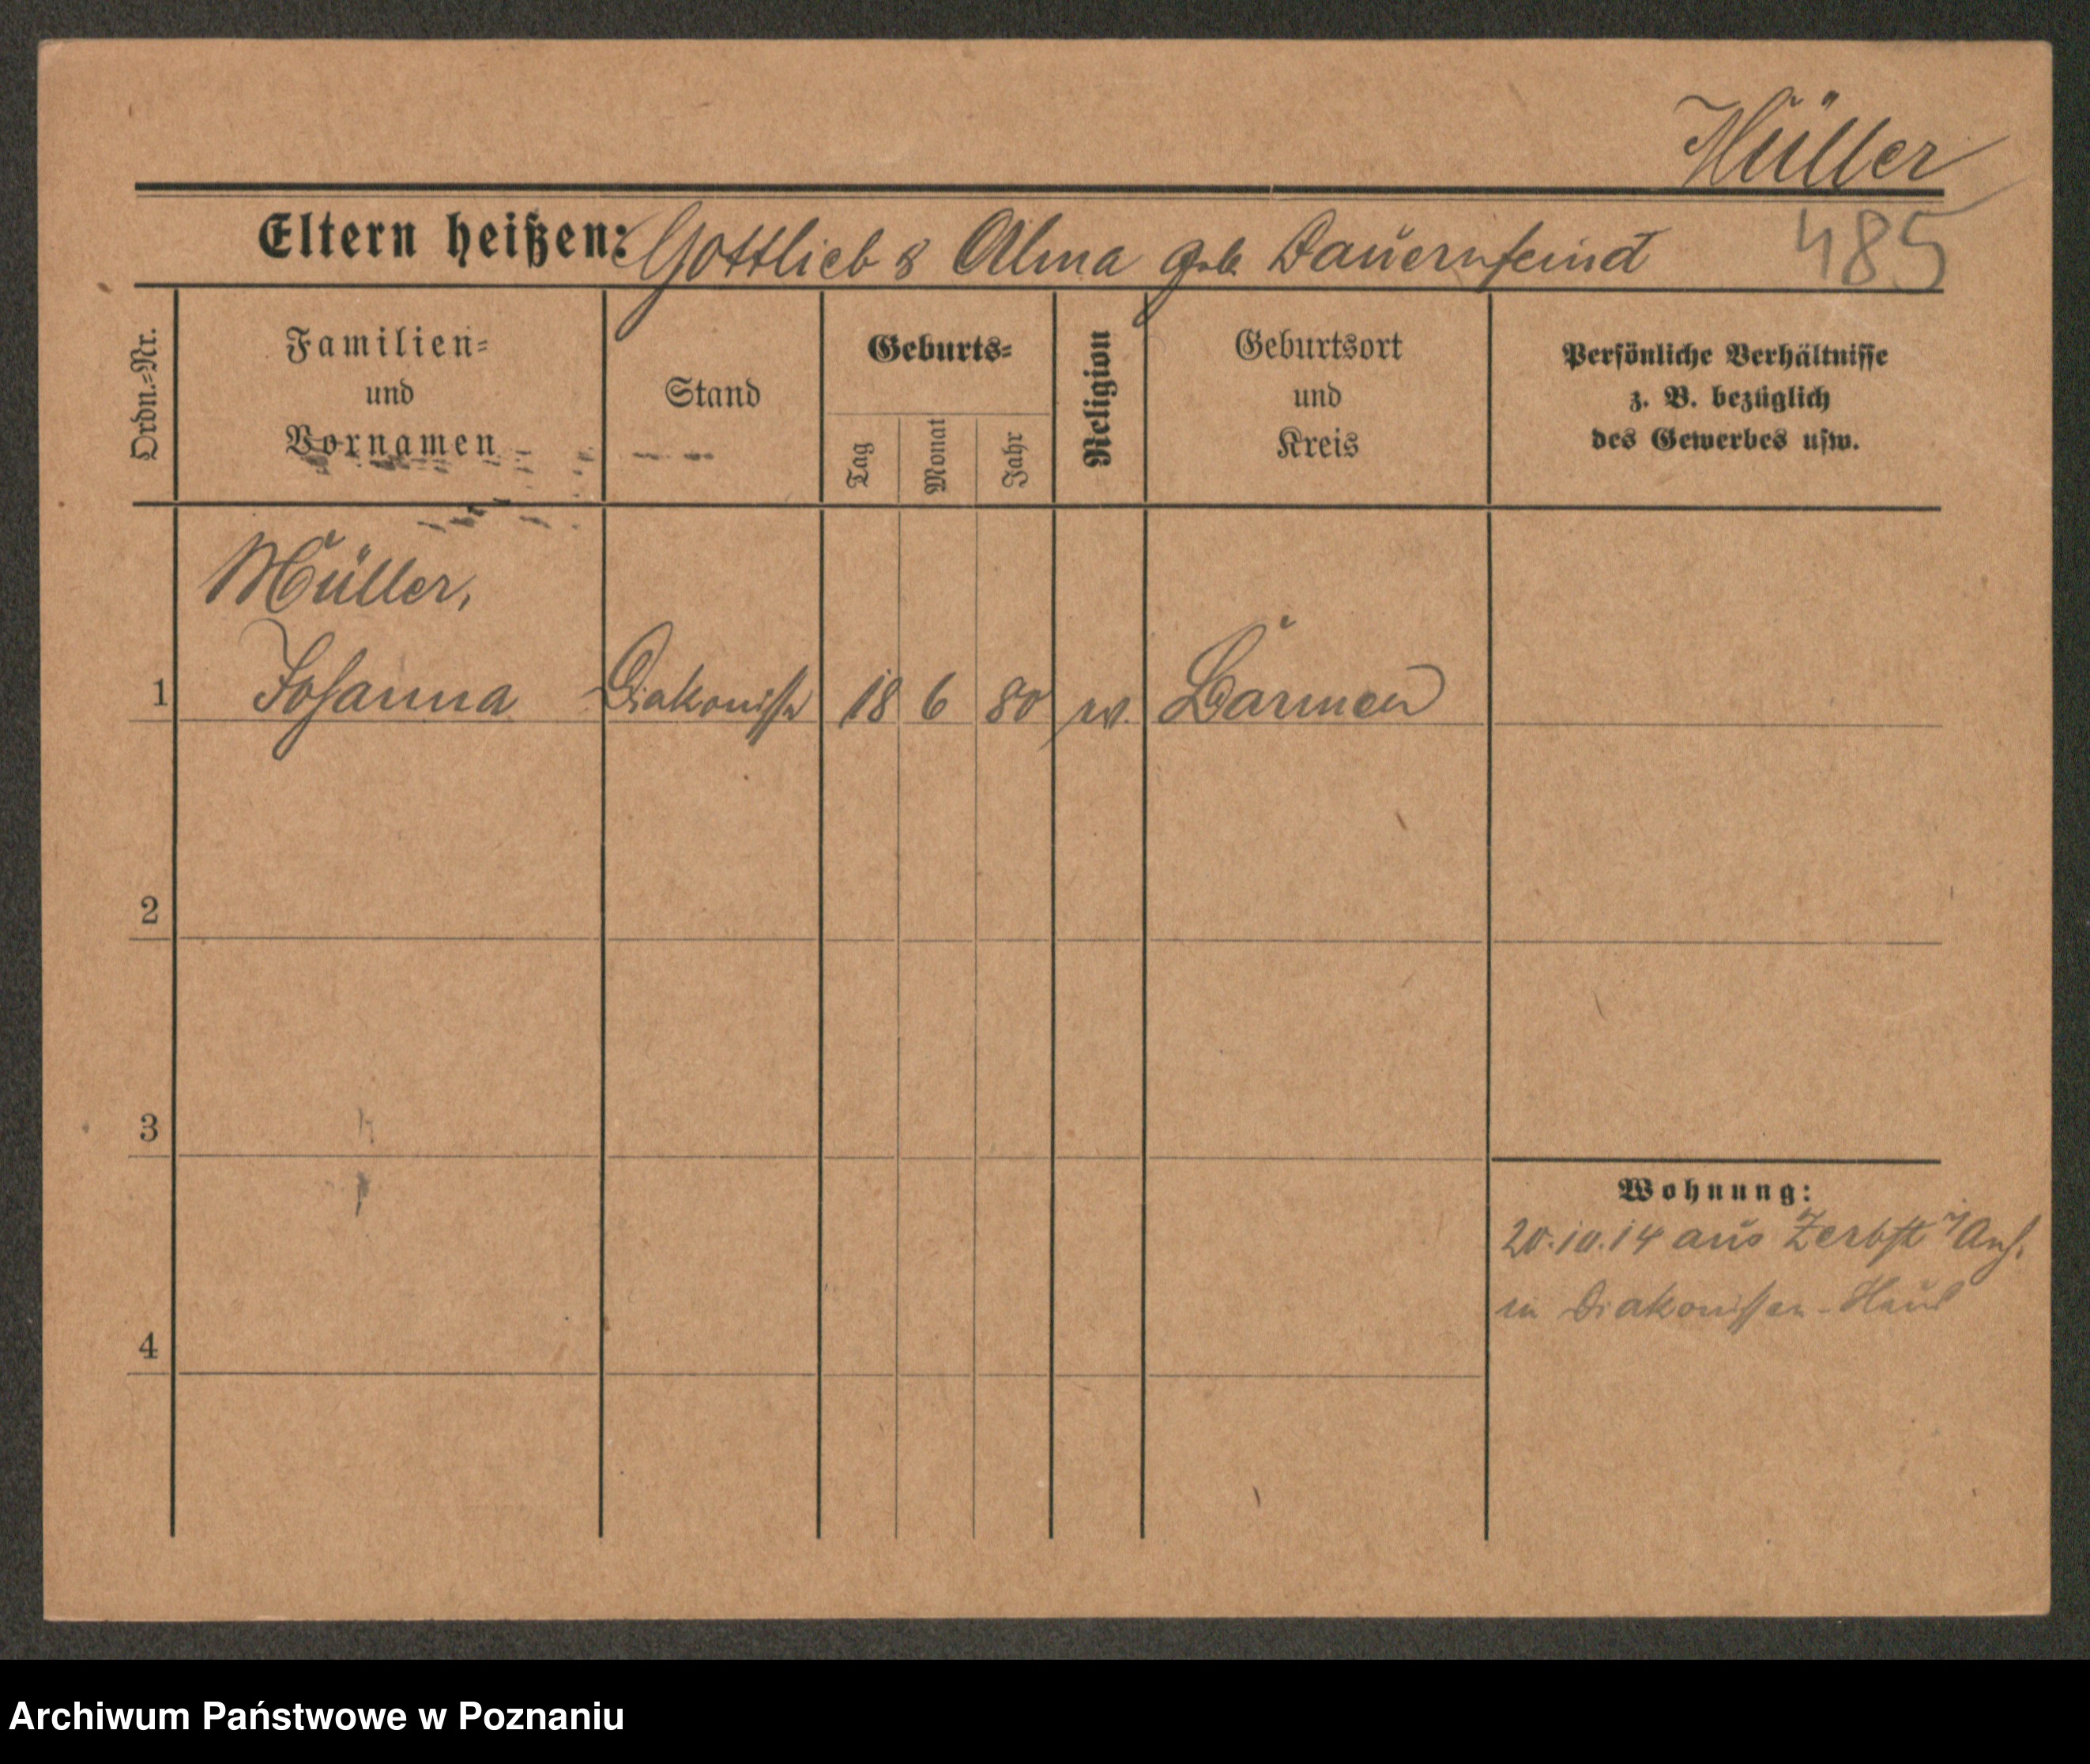 Müller
Eltern heißen: Gottlieb & Alma geb. Bauernfeind
485
Ordn.-Nr.
Familien-
und
Vornamen
Stand
Geburts-
Tag
Monat
Jahr
Religion
Geburtsort
und
Kreis
Persönliche Verhältnisse
z. B. bezüglich
des Gewerbes usw.
Müller,
1 Johanna Diakonisse 18 6 80 ev. Barmen
2
3
4
Wohnung:
20.10.14 aus Zerbst Anh.
in Diakonissen-Haus
Archiwum Państwowe w Poznaniu